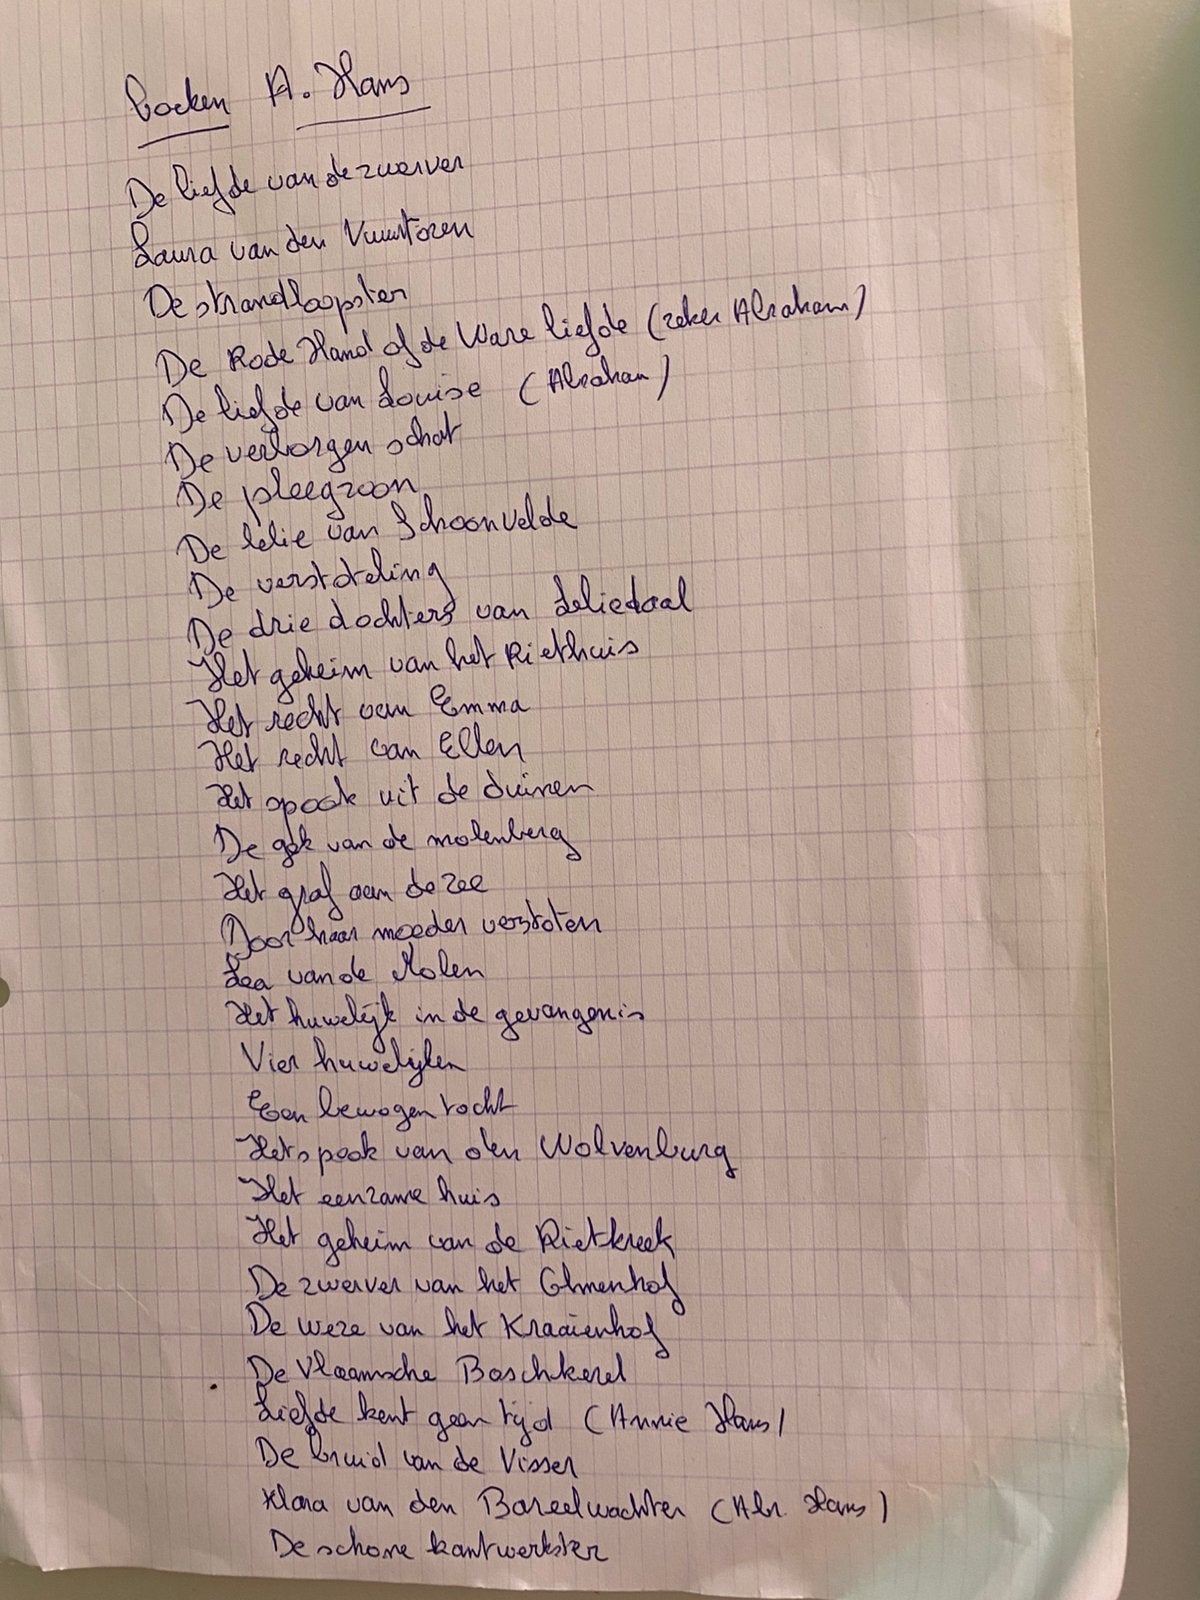 boeken A. Hans
De liefde van de zwerver
Laura van den Vuurtoren
De strandloopster
De Rode Hand of de Ware liefde (zeker Abraham)
De liefde van Louise (Abraham)
De verborgen schat
De pleegzoon
De lelie van Schoonvelde
De verstoteling
De drie dochters van Leliedaal
Het geheim van het Riethuis
Het recht van Emma
Het recht van Ellen
Het spook uit de duinen
De gek van de molenberg
Het graf aan de zee
Door haar moeder verstoten
Lea van de Molen
Het huwelijk in de gevangenis
Vier huwelijken
Een bewogen tocht
Het spook van den Wolvenburg
Het eenzame huis
Het geheim van de Rietkreek
De zwerver van het Olmenhof
De weze van het Kraaienhof
De Vlaamsche Boschkerel
Liefde kent geen tijd (Annie Hans)
De bruid van de Visser
Klara van den Bareelwachter (Abr. Hans)
De schone kantwerkster